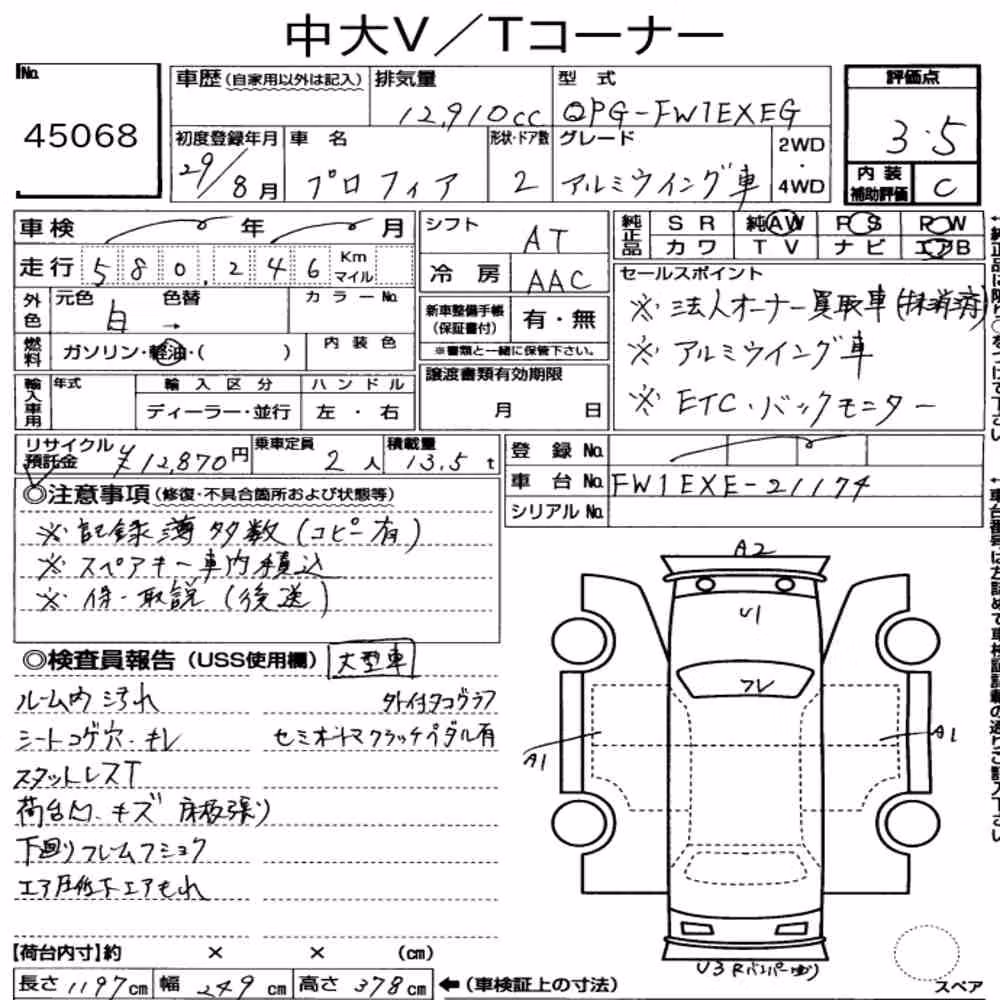 中大V／Tコーナー
No.
45068
車歴（自家用以外は記入）
排気量
12,910cc
型式
QPG-FW1EXEG
評価点
3.5
初度登録年月
29/8月
車名
プロフィア
形状・ドア数
2
グレード
アルミウイング車
2WD
・
4WD
内装
補助評価
C
車検 年 月
走行 580,246 Km
マイル
外色
元色 色替
白 →
カラーNo.
燃料
ガソリン・軽油・( )
内装色
輸入車用
年式
輸入区分
ディーラー・並行
ハンドル
左・右
シフト
AT
冷房
AAC
新車整備手帳
（保証書付）
有・無
※書類と一緒に保管下さい。
譲渡書類有効期限
月 日
純正品
SR 純AW PS PW
カワ TV ナビ エアB
セールスポイント
※法人オーナー買取車(抹消済)
※アルミウイング車
※ETC・バックモニター
リサイクル
預託金
¥12,870円
乗車定員
2人
積載量
13.5t
登録No.
車台No.
FW1EXE-21174
シリアルNo.
◎注意事項（修復・不具合箇所および状態等）
※記録簿多数(コピー有)
※スペアキー車内積込
※保・取説(後送)
◎検査員報告（USS使用欄） 大型車
ルーム内汚れ 外付タコグラフ
シートコゲ穴・キレ セミオートマクラッチペダル有
スタットレスT
荷台凹・キズ 床板張り
下廻りフレームフショク
エア圧低下エアもれ
【荷台内寸】約 × × (cm)
長さ 1197cm 幅 249cm 高さ 378cm
←（車検証上の寸法）
A2
U1
フレ
A1
A1
U3 Rバンパー
スペア